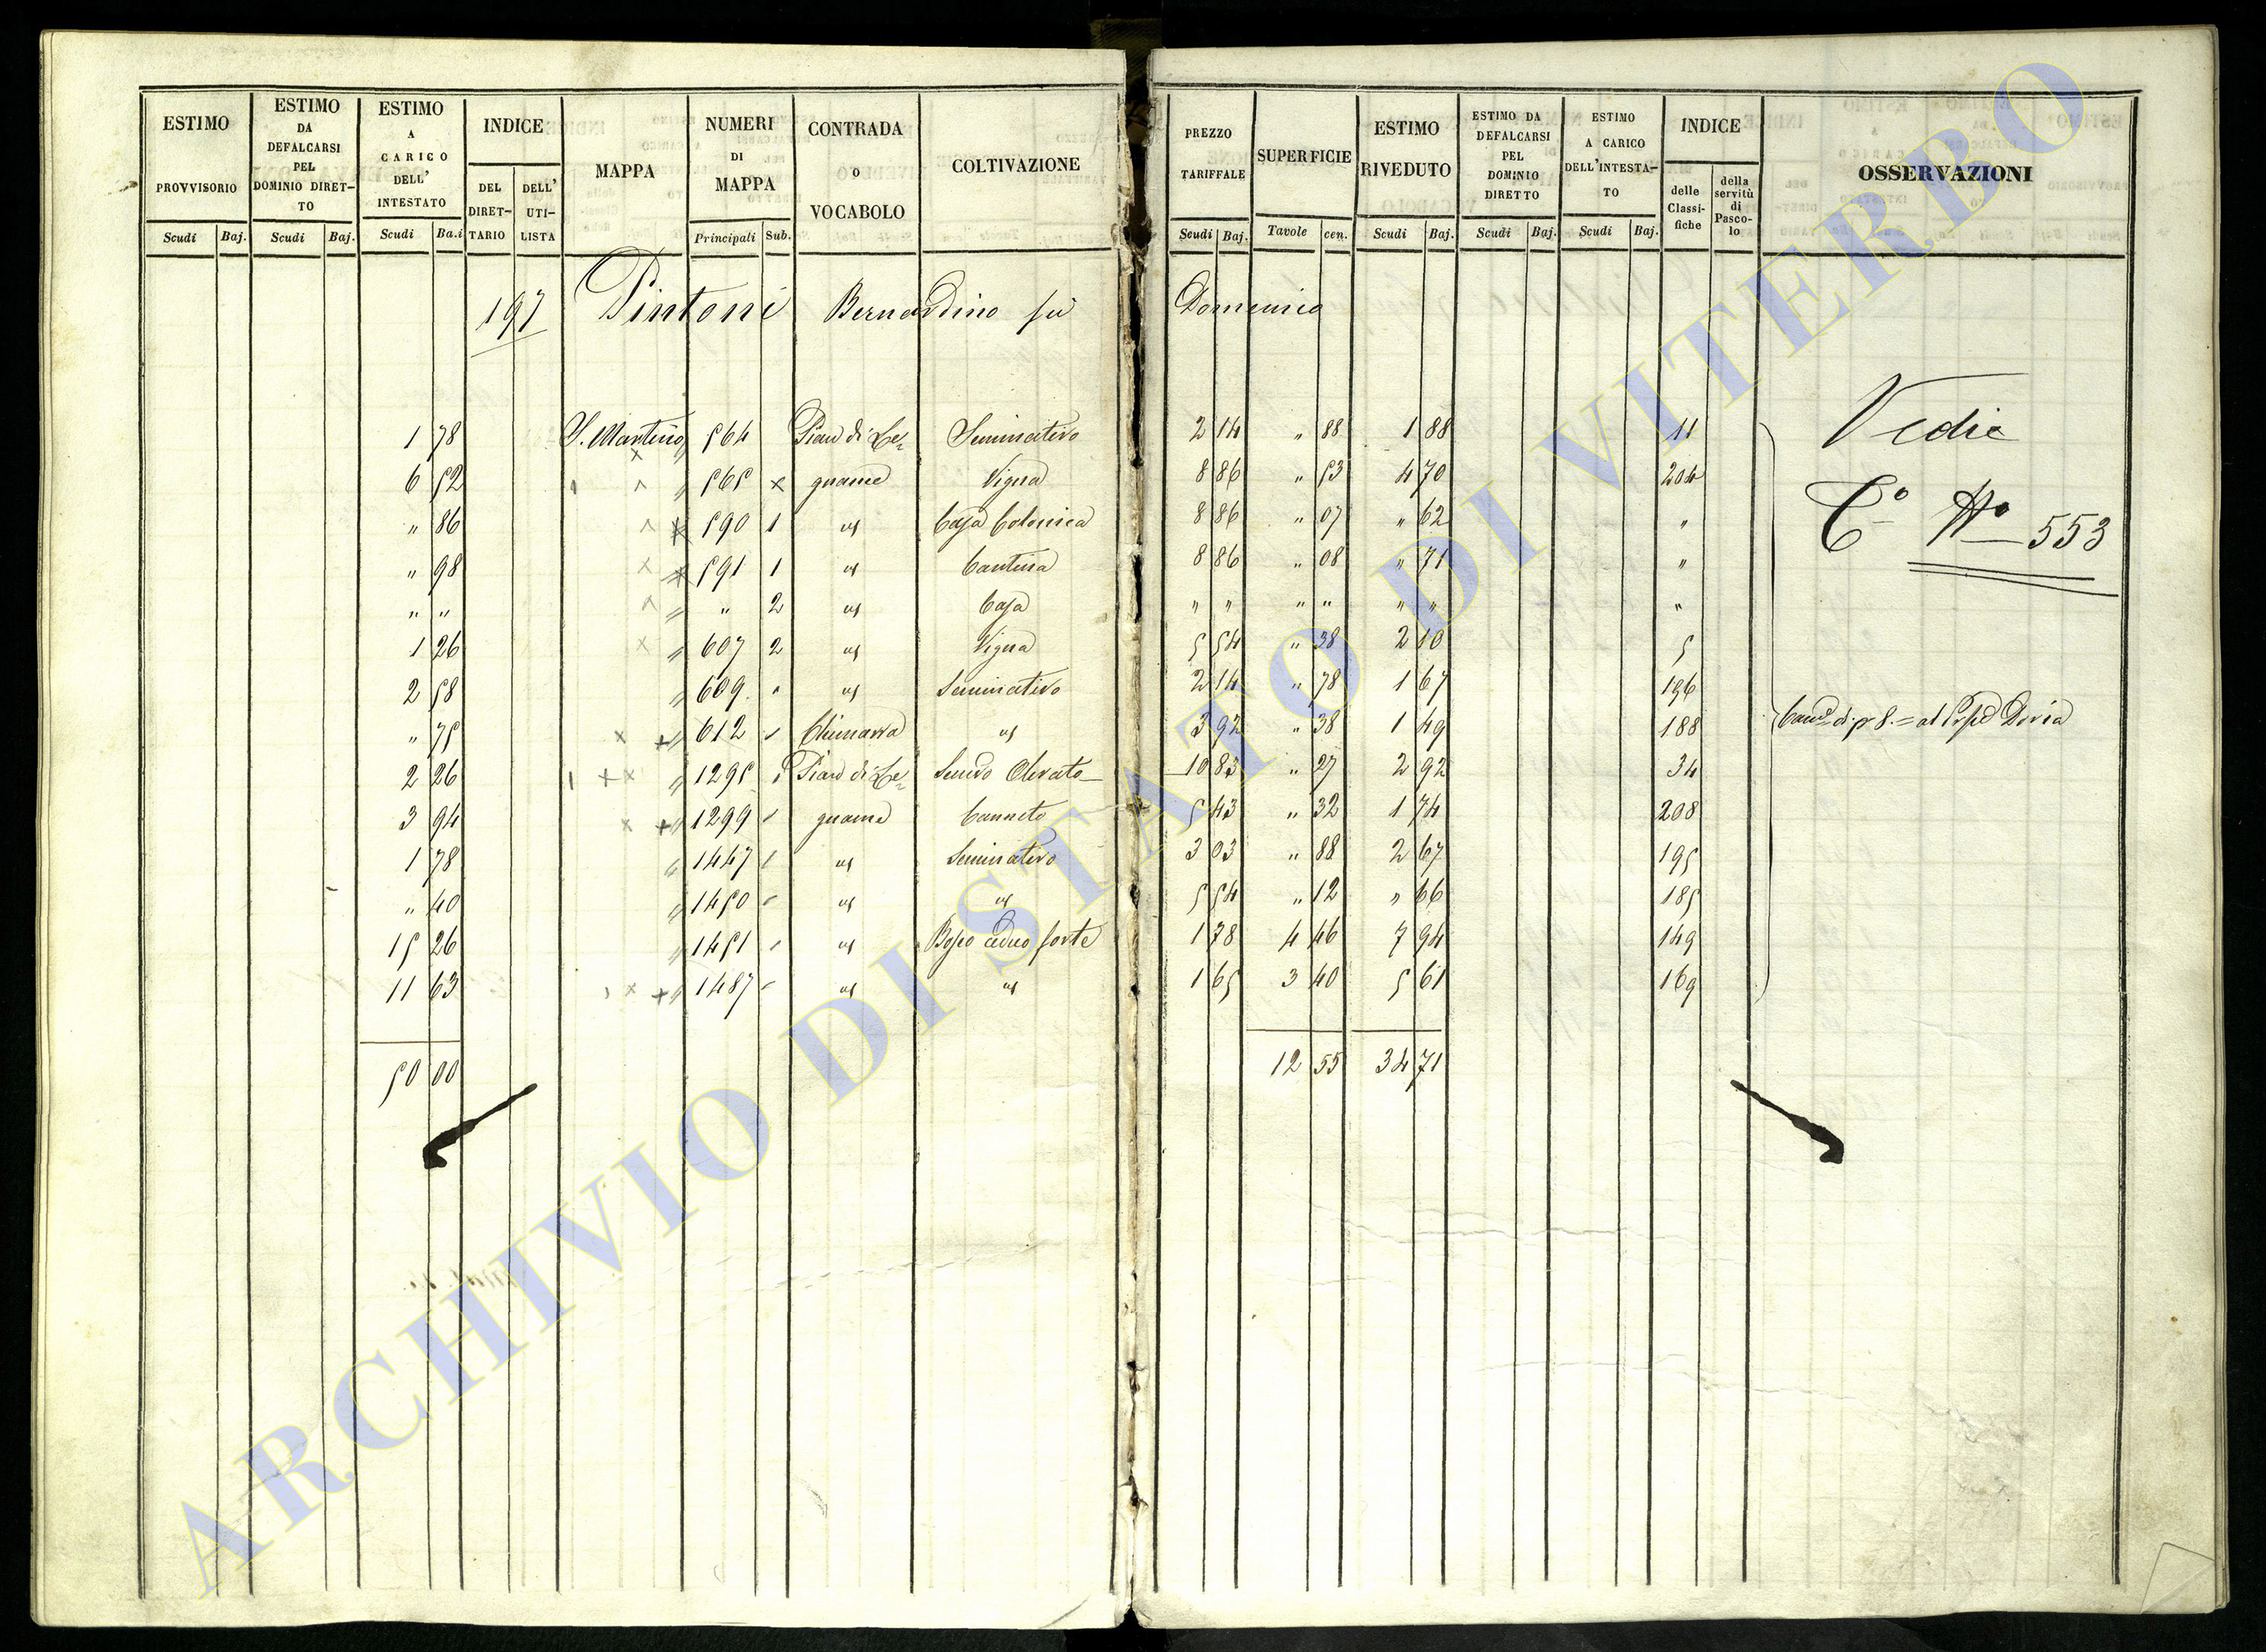 ESTIMO PROVVISORIO | ESTIMO DA DEFALCARSI PEL DOMINIO DIRET-TO | ESTIMO A CARICO DELL' INTESTATO | INDICE DEL DIRET-TARIO | DELL' UTI-LISTA | MAPPA | NUMERI DI MAPPA | CONTRADA O VOCABOLO | COLTIVAZIONE | PREZZO TARIFFALE | SUPERFICIE | ESTIMO RIVEDUTO | ESTIMO DA DEFALCARSI PEL DOMINIO DIRETTO | ESTIMO A CARICO DELL'INTESTA-TO | INDICE delle Classi-fiche | della servitù di Pasco-lo | OSSERVAZIONI
Scudi | Baj. | Scudi | Baj. | Scudi | Ba.i | Principali | Sub. | Scudi | Baj. | Tavole | cen. | Scudi | Baj. | Scudi | Baj. | Scudi | Baj.
197 Pintoni Bernardino fù Domenico
1 78 S. Martino 564 Pian di Le= Seminativo 2 14 " 88 1 88 11 Vedi
6 52 " 565 x gname Vigna 8 86 " 53 4 70 204 C° N° 553
" 86 590 1 us Casa Colonica 8 86 " 07 " 62 "
" 98 591 1 us Cantina 8 86 " 08 " 71 "
" " " " 2 us Casa " " " " " " "
1 26 " 607 2 us Vigna 5 54 " 38 2 10 5
2 58 " 609 " us Seminativo 2 14 " 78 1 67 196
" 75 " 612 " Chimarra us 3 92 " 38 1 49 188 Doria
2 26 " 1295 " Pian di Le= Olivato 10 83 " 27 2 92 34
3 94 " 1299 " gname Canneto 5 43 " 32 1 74 208
1 78 " 1447 " us Seminativo 3 03 " 88 2 67 195
" 40 " 1450 " us us 5 54 " 12 " 66 185
15 26 " 1451 " us Bosco ceduo forte 1 78 4 46 7 94 149
11 63 " 1487 " us us 1 65 3 40 5 61 169
50 00 12 55 34 71
ARCHIVIO DI STATO DI VITERBO